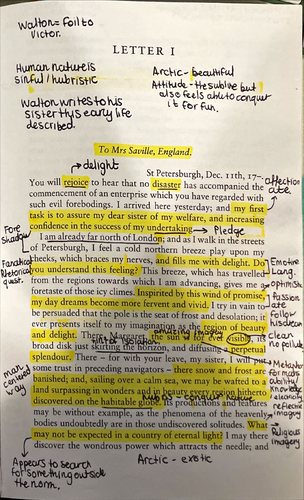 Walton = foil to
Victor.
LETTER I
Human nature is
sinful / hubristic
Arctic - beautiful
Attitude - the sublime but
also feels able to conquer
it for fun.
Walton writes to his
sister thys early life
described.
To Mrs Saville, England.
→ delight
St Petersburgh, Dec. 11th, 17–
You will rejoice to hear that no disaster has accompanied the
commencement of an enterprise which you have regarded with
such evil forebodings. I arrived here yesterday; and my first
task is to assure my dear sister of my welfare, and increasing
confidence in the success of my undertaking.
→ Pledge
affectionate
I am already far north of London; and as I walk in the streets
of Petersburgh, I feel a cold northern breeze play upon my
cheeks, which braces my nerves, and fills me with delight. Do
you understand this feeling? This breeze, which has travelled
from the regions towards which I am advancing, gives me a
foretaste of those icy climes. Inspirited by this wind of promise,
my day dreams become more fervent and vivid. I try in vain to
be persuaded that the pole is the seat of frost and desolation; it
ever presents itself to my imagination as the region of beauty
and delight. There, Margaret, the sun is for ever visible, its
broad disk just skirting the horizon, and diffusing a perpetual
splendour. There – for with your leave, my sister, I will put
some trust in preceding navigators – there snow and frost are
banished; and, sailing over a calm sea, we may be wafted to a
land surpassing in wonders and in beauty every region hitherto
discovered on the habitable globe. Its productions and features
may be without example, as the phenomena of the heavenly
bodies undoubtedly are in those undiscovered solitudes. What
may not be expected in a country of eternal light? I may there
discover the wondrous power which attracts the needle; and
Fore
Shadow
Fanatical
Rhetorical
quest.
Man
centered
way
Emotive
Lang.
optimistic
Passion
ate
Follow
his dream
clean
Metaphor
for man
knowledge
reflective
imagery
Religious
imagery
amazing imagery
isolation
hubris - conquer nature
Appears to search
for something outside
the norm.
Arctic - exotic